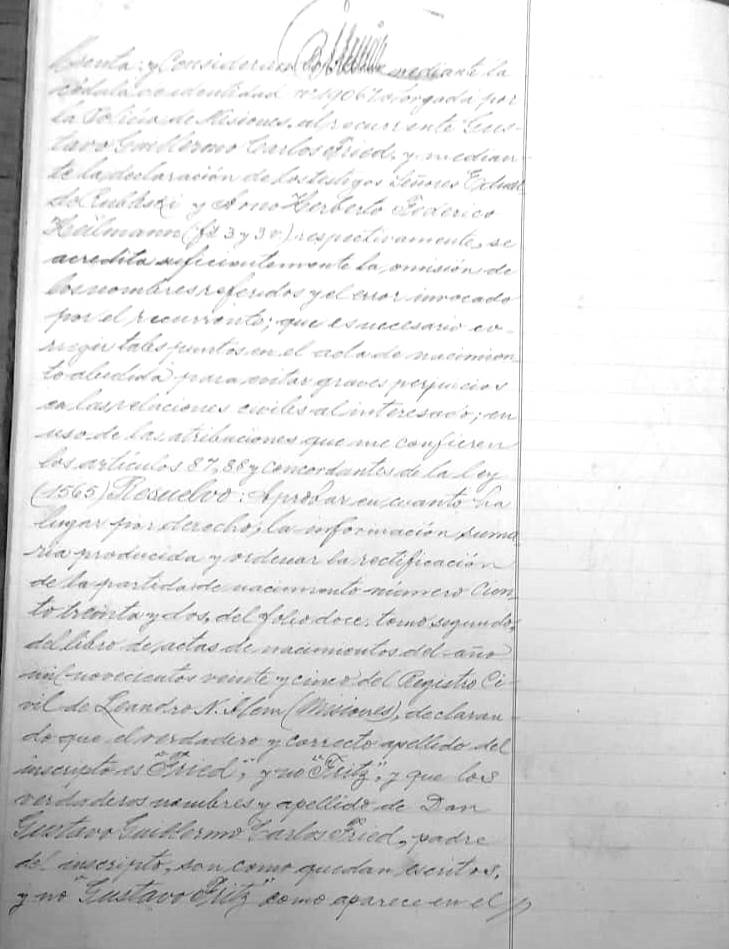 senta: y Considerando: Que mediante la
cédula de identidad nº 19067 otorgada por
la Policía de Misiones, al recurrente Gus-
tavo Guillermo Carlos Fried, y median-
te la declaración de los testigos Señores
y Arno Herberto Federico
Heilmann (fs 3 y 3 v) respectivamente, se
acredita suficientemente la omisión de
los nombres referidos y el error invocado
por el recurrente; que es necesario co-
rregir tales puntos en el acta de nacimien-
to aludida para evitar graves perjuicios
en las relaciones civiles al interesado; en
uso de las atribuciones que me confieren
los artículos 87, 88 y concordantes de la ley
(1565) Resuelvo: Aprobar en cuanto ha
lugar por derecho, la información suma-
ria producida y ordenar la rectificación
de la partida de nacimiento número Cien-
to treinta y dos, del folio doce, tomo segundo,
del libro de actas de nacimientos del año
mil novecientos veinte y cinco del Registro Ci-
vil de Leandro N. Alem (Misiones), declaran-
do que el verdadero y correcto apellido del
inscripto es "Fried", y no "Fritz", y que los
verdaderos nombres y apellido de Don
Gustavo Guillermo Carlos Fried, padre
del inscripto, son como quedan escritos,
y no "Gustavo Fritz" como aparece en el //